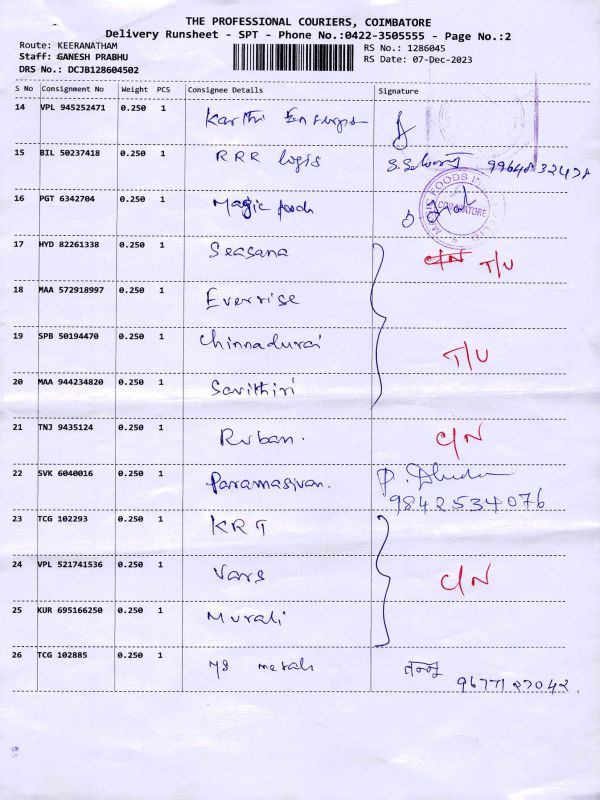 THE PROFESSIONAL COURIERS, COIMBATORE
Delivery Runsheet - SPT - Phone No.:0422-3505555 - Page No.:2
Route: KEERANATHAM RS No.: 1286045
Staff: GANESH PRABHU RS Date: 07-Dec-2023
DRS No.: DCJB128604502
S No Consignment No Weight PCS Consignee Details Signature
14 VPL 945252471 0.250 1 Karthi
15 BIL 50237418 0.250 1 RRR logis
16 PGT 6342704 0.250 1 Magic foods
MAGIC FOODS
COIMBATORE
17 HYD 82261338 0.250 1 Seasana C/N T/U
18 MAA 572918997 0.250 1 Everrise
19 SPB 50194470 0.250 1 Chinnadurai T/U
20 MAA 944234820 0.250 1 Savithiri
21 TNJ 9435124 0.250 1 Ruban. C/N
22 SVK 6040016 0.250 1 Paramasivan. 9842534076
23 TCG 102293 0.250 1 KRT
24 VPL 521741536 0.250 1 Vars C/N
25 KUR 695166250 0.250 1 Murali
26 TCG 102885 0.250 1 metals 9677127042.